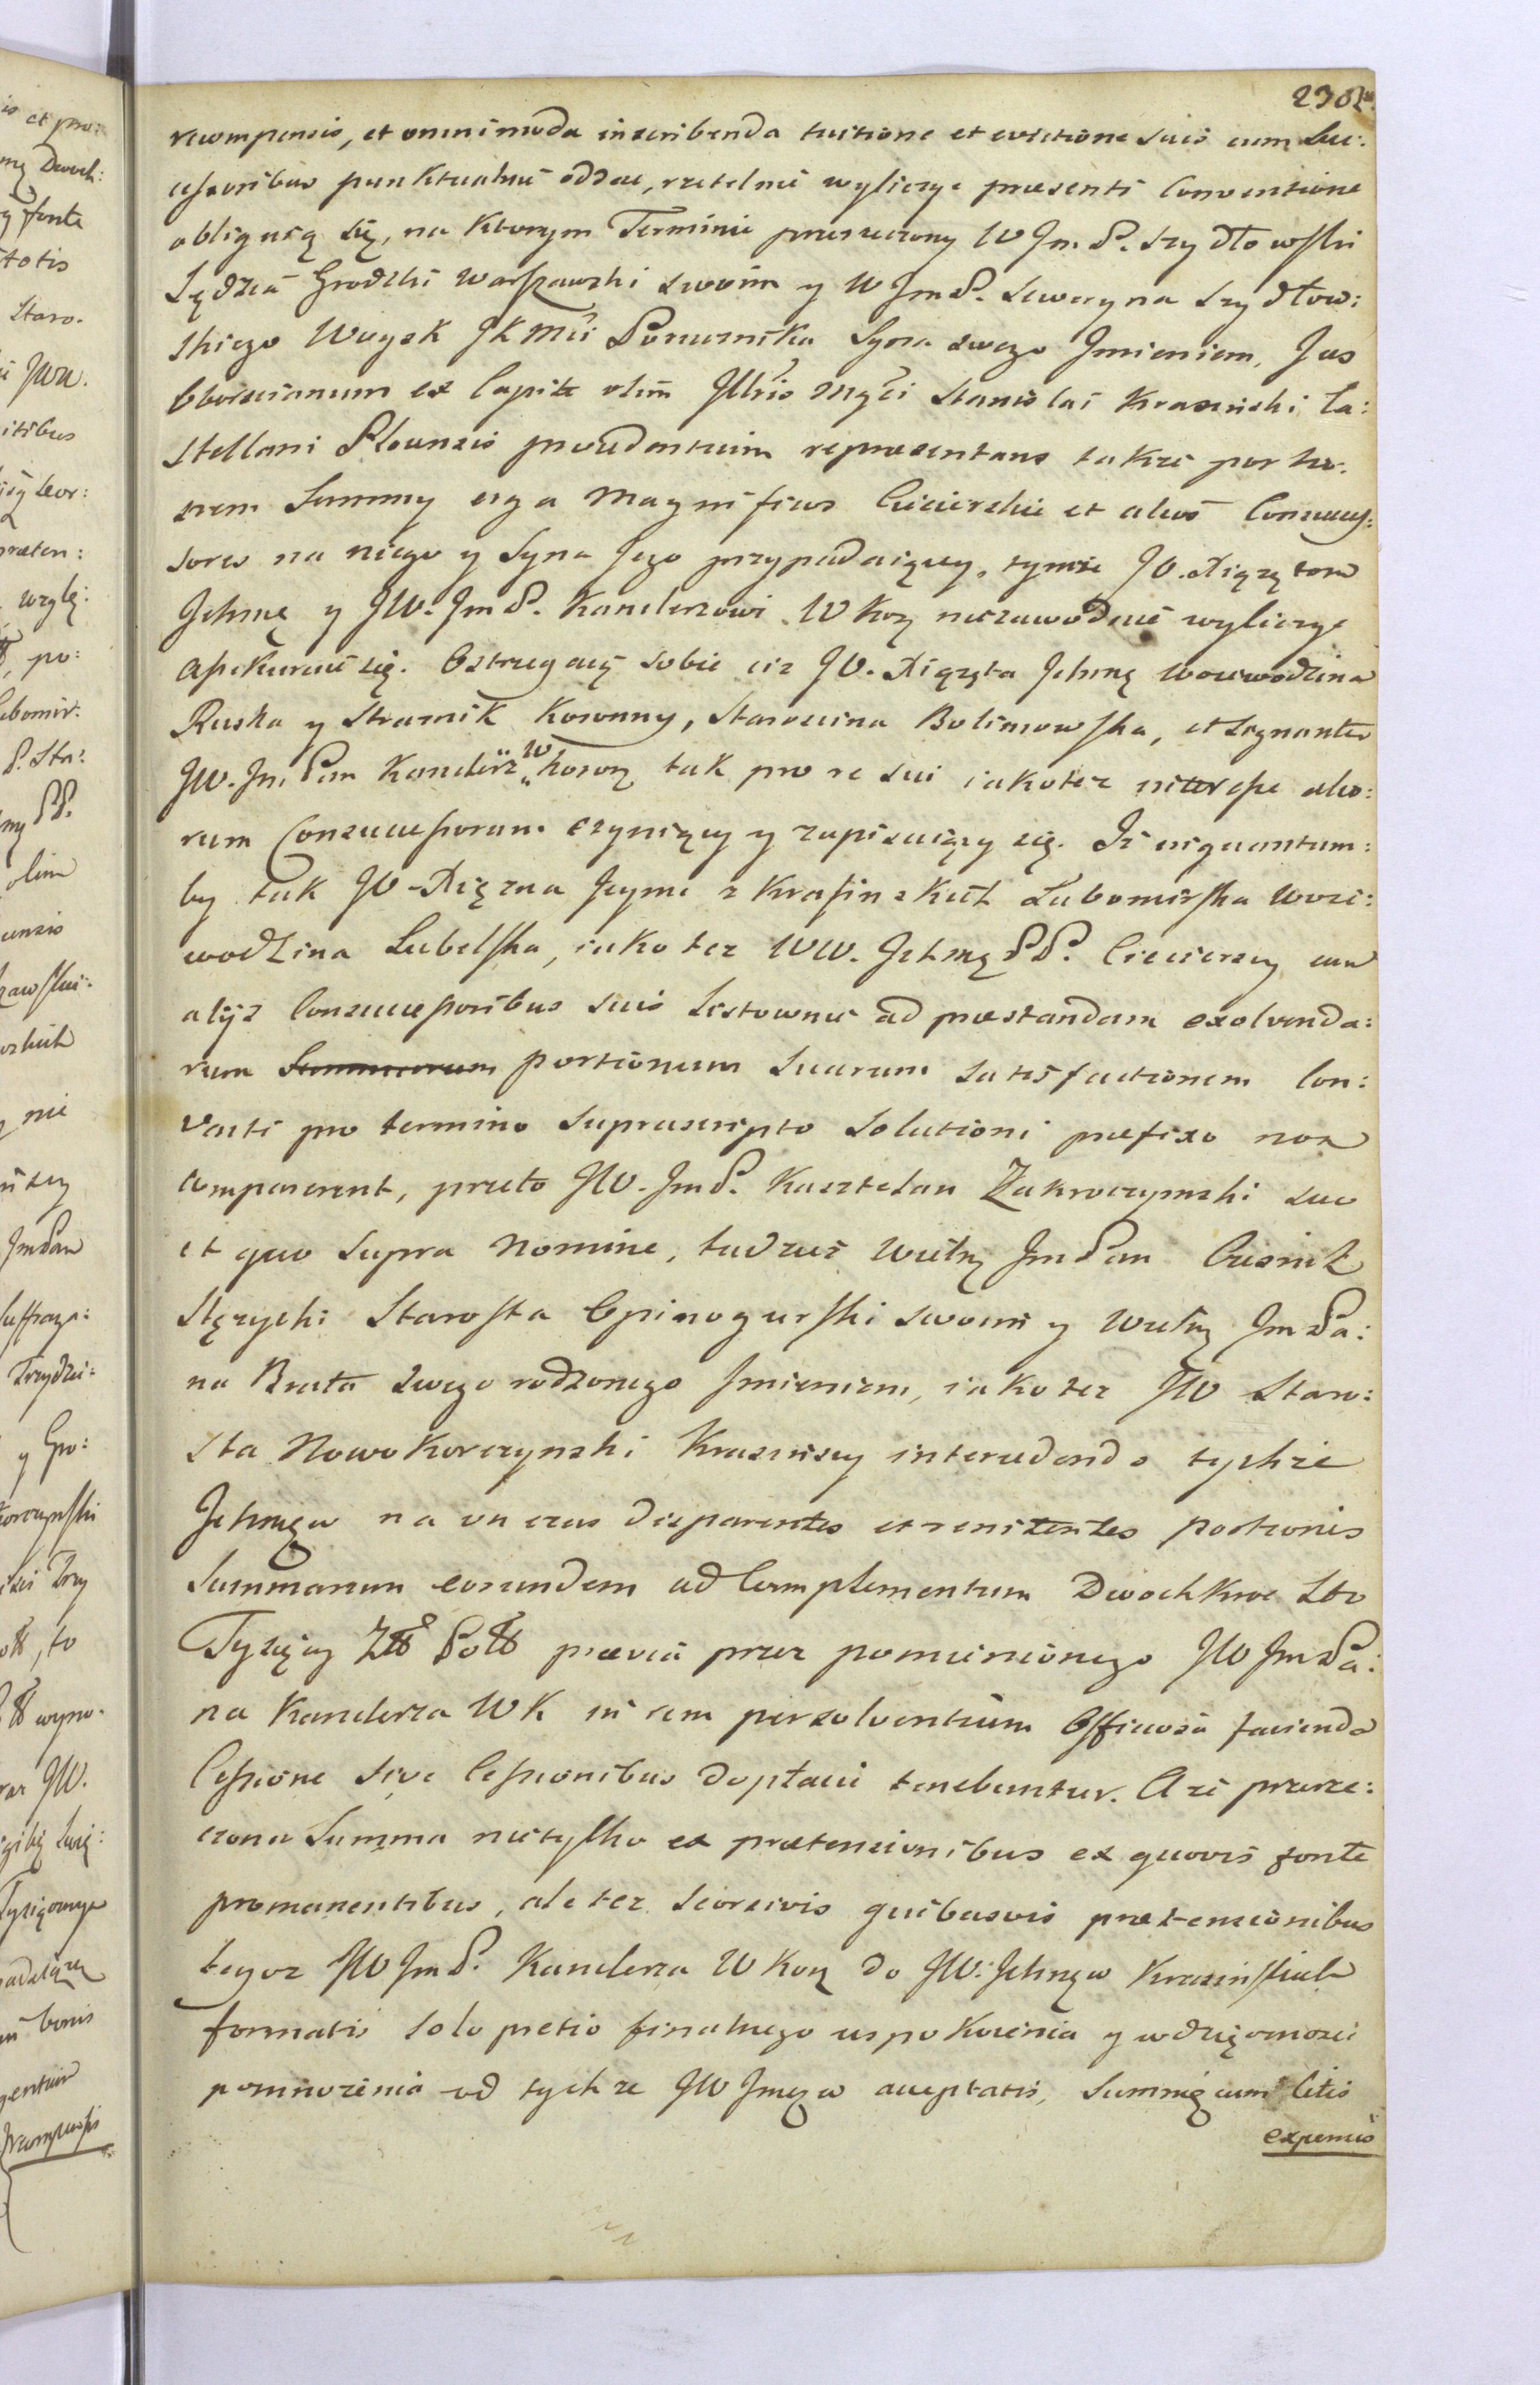 recompensis, et omnimoda inscribenda tuitione et evictione suis cum Suc:
cessoribus punktualnie oddać, rzetelnie wyliczyć praesenti Conventione
obliguią się, na Ktorym Terminie przerzeczony W Jm. P. Szydłowski
Sędzia Grodzki Warszawski swoim y W JmP. Seweryna Szydłow:
skiego Woysk JKMci Porucznika Syna swego Jmieniem, Jus
Oborscianum ex Capite olim Illris Mgci Stanislai Krasinski Ca:
stellani Plocensis procedentium repraesentans takze portio:
nem Summy erga Magnificos Ciecierskie et alios Consucces:
sores na niego y Syna Jego przypadaiącey, tymze JO. Xiązętom
Jchmę y JW. JmP. Kanclerzowi WKor niezawodnie wyliczyć
assekuruie się. Ostrzegaią sobie iisz JO. Xiązęta Jchmę woiewodzina
Ruska y Straznik Koronny, Starościna Bolimowska, et signanter
JW. Jm Pan Kanclerz W koron tak pro re sui iakotez interesse alio:
rum Consuccessorum czyniący y zapisuiący się. Jż inquantum:
by tak JO Xiężna Jeyme z Krasinskich Lubomirska Woie:
wodzina Lubelska, iako tez WW. Jchmę PP. Cieciersey cum
alijs Consuccessoribus suis Listownie ad praestandam exolvenda:
rum Summarum portionum suarum satisfactionem Con:
vocati pro termino suprascripto solutioni praefixo non
comparerent, przeto JW. JmP. Kasztelan Zakroczymski suo
et quo supra Nomine, tudzież Wielmy JmPan Cześnik
Stężycki Starosta Opinogurski swoim y Wielmy JmPa:
na Brata swego rodzonego Jmieniem, iako tez JW Staro:
sta NowoKorczynski Krasinscy intercedendo tychże
Jchmęw na on czas disparentes et renitentes portionis
Summarum eorundem ad Complementum Dwochkroc Sto
Tysięcy Złł Poll praevia przez pomienionego JW JmPa:
na Kanclerza WK in rem persolventium Officiosa facienda
Cessione sive Cessionibus dopłacić tenebuntur. A że przerze:
czona Summa nietylko ex praetensionibus ex quovis fonte
promanentibus, ale tez seorsivis quibusvis praetensionibus
tegoz JW JmP. Kanclerza WKor do JW. Jchmęw Krasinskich
formatis solo pretio finalnego uspokoienia y wdzięcznosci
pomnozenia od tychze JW Jmęw acceptatis, Summęcum litis
expensis